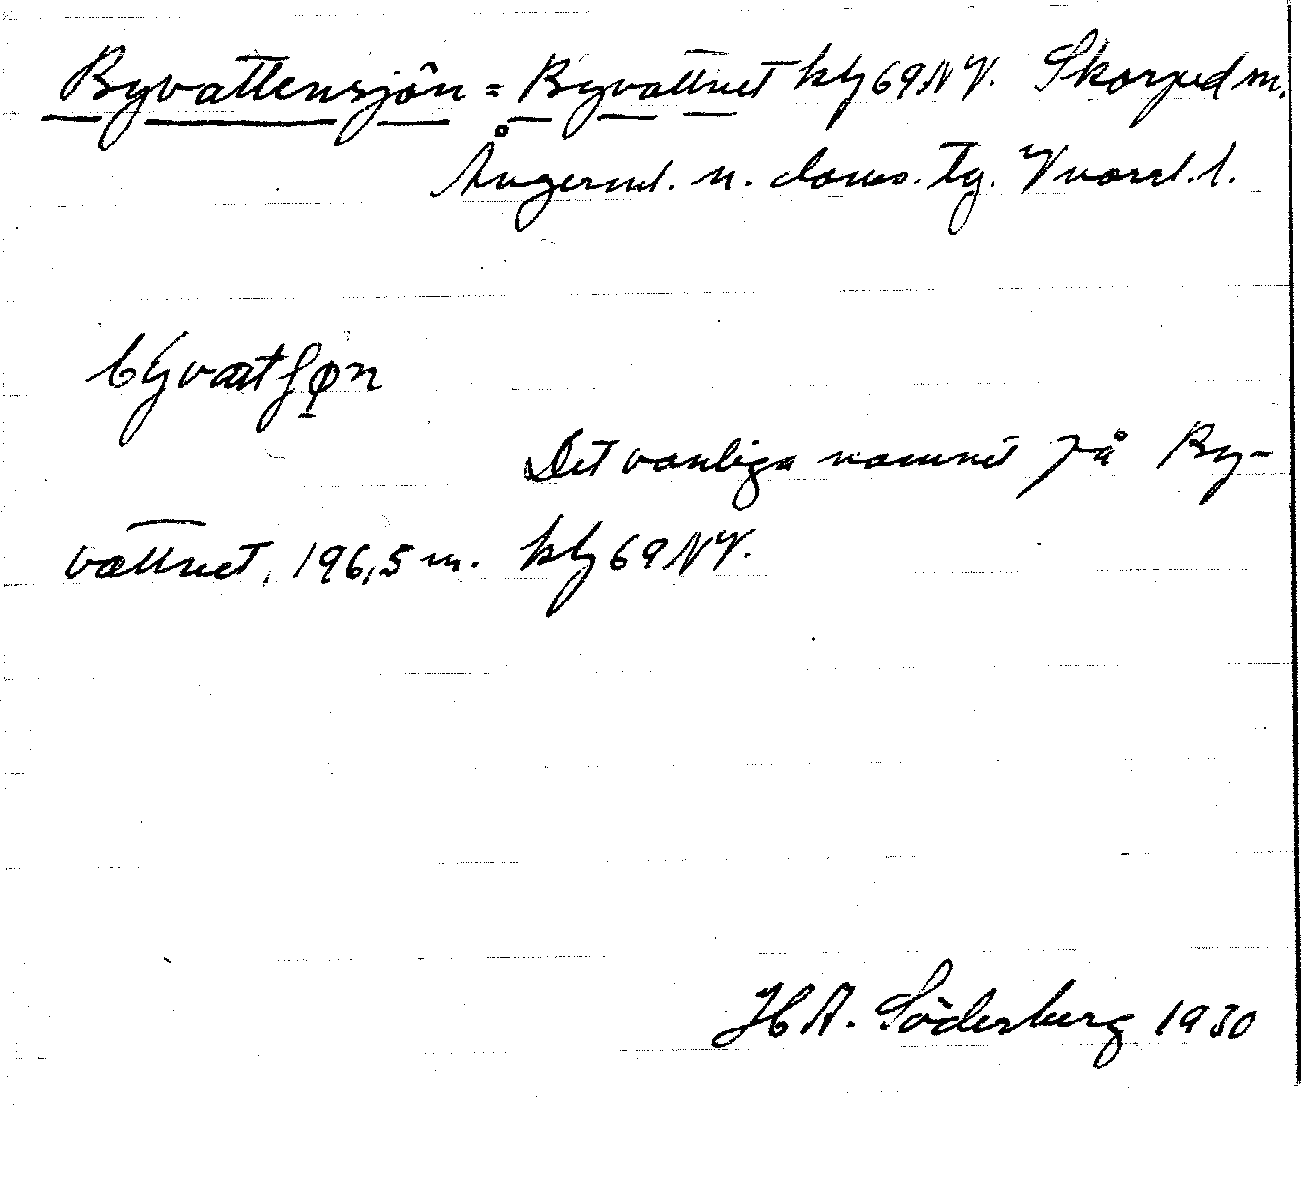 Byvattensjön = Byvattnet kbl 69 NV. Skorped sn.
Ångerml. n. doms. tg. Vnorrl. l.
bɥvatʃøn
Det vanliga namnet på By-
vattnet, 196,5 m. kbl 69 NV.
H A. Söderberg 1930